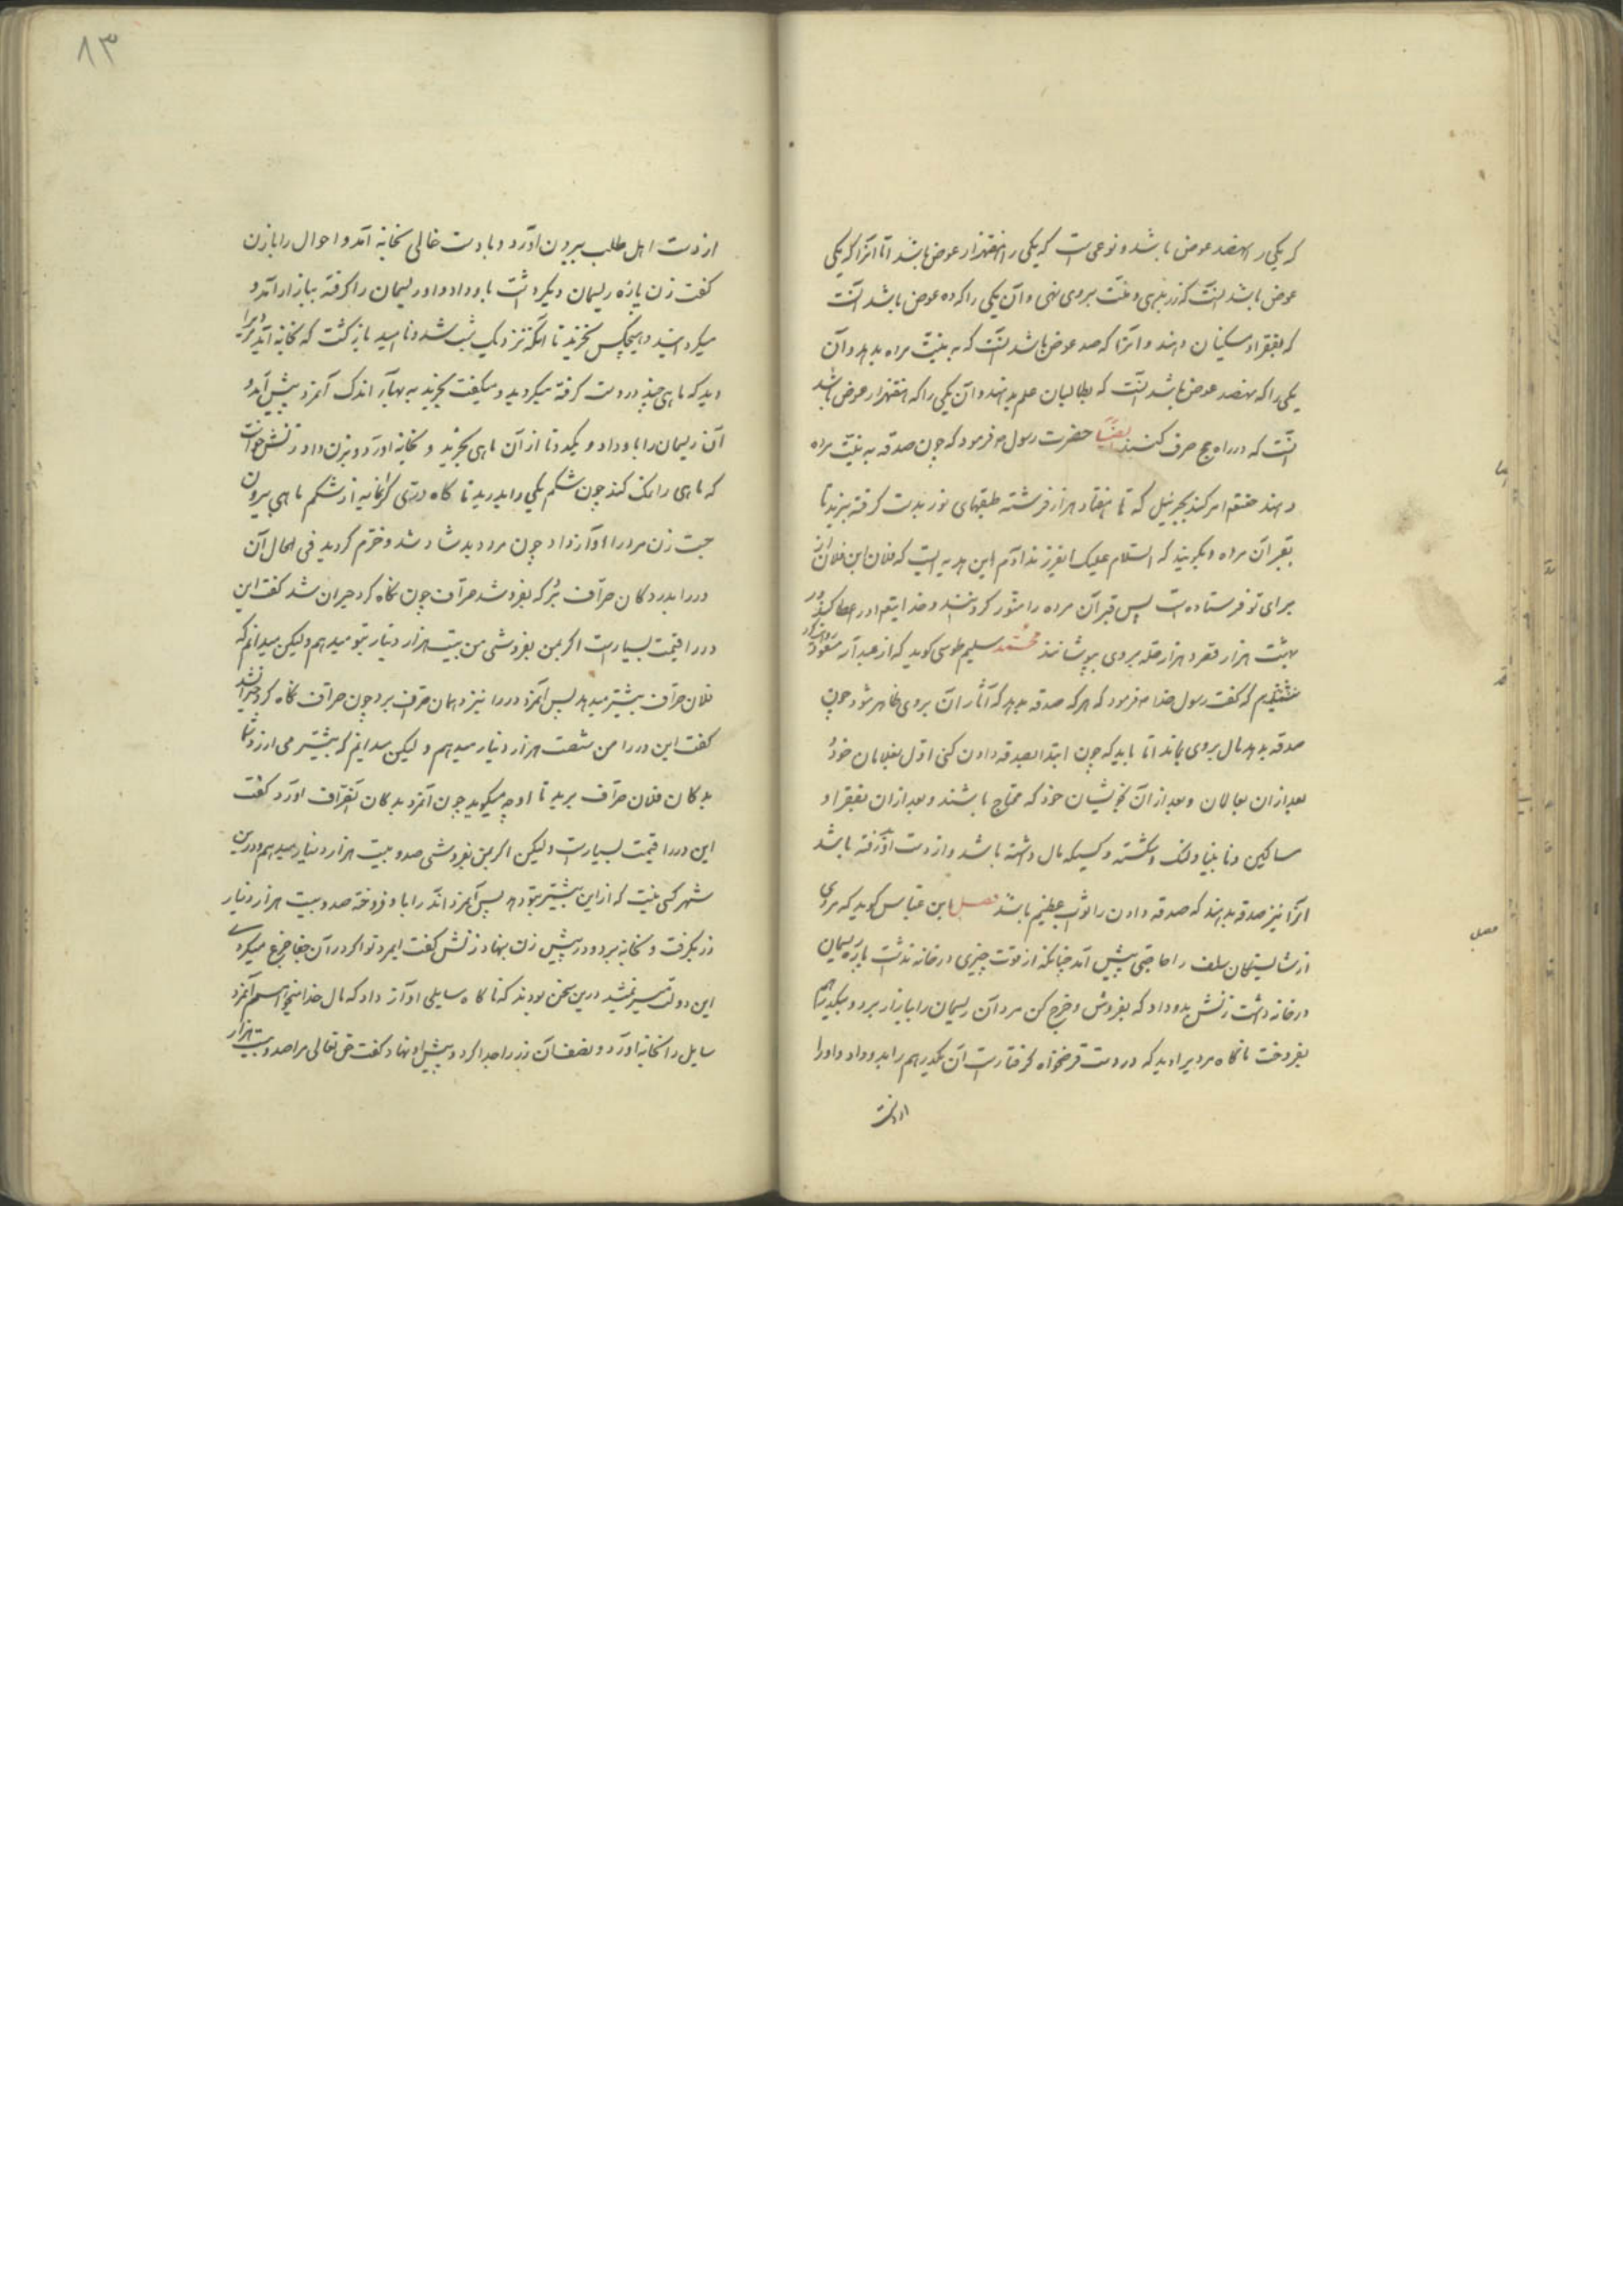 که یکی را هفصد عوض باشد و نوعی است که یکی را هفتهزار عوض باشد اما انرا که یکی
عوض باشد انست که زر بدهی و منت بروی نهی و آن یکی را که ده عوض باشد انست
که بفقرا و مسکینان دهند و انرا که صد عوض باشد انست که به نیت مرده بدهد و آن
یکی را که هفصد عوض باشد انست که بطالبان علم بدهند و آن یکی را که هفتهزار عوض باشد
انست که در راه حج صرف کنند ایضا حضرت رسول فرمود که چون صدقه به نیت مرده
دهند حقتعالی امر کند بجبرئیل که تا هفتاد هزار فرشته طبقهای نور بدست گرفته ببرند تا
بقبر آن مرده و بگویند که السلام علیک ایفرزند آدم این هدیه ایست که فلان ابن فلان از
برای تو فرستاده است پس قبر آن مرده را منور گردانند و خدایتعالی او را عطا کند در
بهشت هزار قصر و هزار حله بروی بپوشانند محمد سلیم طوسی گوید که از عبدالله مسعود
شنیدیم که گفت رسول خدا فرمود که هر که صدقه بدهد که آثار آن بروی ظاهر شود چون
صدقه بدهد مال بروی بماند اما باید که چون ابتدا بصدقه دادن کنی اول بغلامان خود
بعد ازان بعیالان و بعد از آن بخویشان خود که محتاج باشند و بعد ازان بفقرا و
مساکین و نابینا و لنگ و شکسته و کسیکه مال داشته باشد و از دست او رفته باشد
انرا نیز صدقه بدهند که صدقه دادن را ثواب عظیم باشد فصل ابن عباس گوید که مردی
از شایستگان سلف را حاجتی پیش آمد چنانکه از قوت چیزی در خانه نداشت پاره ریسمان
در خانه داشت زنش بدو داد که بفروش و خرج کن مرد آن ریسمان را ببازار برد و بیکدرهم
بفروخت ناگاه مردیرا دید که در دست قرضخواه گرفتار است آن یکدرهم را بدو داد و او را
از دست
ایضا
فصل
۸۳
از دست اهل طلب بیرون آورد و با دست خالی بخانه آمد و احوال را با زن
گفت زن پاره ریسمان دیگر داشت باو داد و او ریسمان را گرفته ببازار آمد و
میگردانید و هیچکس نخرید تا انکه نزدیک شب شد و نا امید بازگشت که بخانه آید مردیرا
دید که ماهی چند در دست گرفته میگردید و میگفت بخرید به بهای اندک آنمرد پیش آمد و
آن ریسمان را باو داد و یکدو تا از آن ماهی بخرید و بخانه آورد و بزن داد زنش خواست
که ماهی را پاک کند چون شکم یکی را بدرید ناگاه دری گرانمایه از شکم ماهی بیرون
جست زن مرد را آواز داد چون مرد دید شاد شد و خرم گردید فی الحال آن
در را بدر دکان صراف برد که بفروشد صراف چون نگاه کرد حیران شد گفت این
در را قیمت بسیار است اگر بمن بفروشی من بیست هزار دینار بتو میدهم ولیکن میدانم که
فلان صراف بیشتر میدهد پس آنمرد در را نیز دهمان صراف برد چون صراف نگاه کرد حیران شد
گفت این در را من شصت هزار دینار میدهم و لیکن میدانم که بیشتر می ارزد شما
بدکان فلان صراف برید تا او چه میگوید چون آنمرد بدکان آنصراف آورد گفت
این در را قیمت بسیار است ولیکن اگر بمن بفروشی صد و بیست هزار دینار میدهم و درین
شهر کسی نیست که از این بیشتر بتو دهد پس آنمرد آندر را باو فروخته صد و بیست هزار دینار
زر بگرفت و بخانه برد و در پیش زن بنهاد زنش گفت ایمرد تو اگر در آن جفا جزع میکردی
این دولت میسر نمیشد درین سخن بودند که ناگاه سایلی آواز داد که مال خدا میخواهم آنمرد
سایل را بخانه آورد و نصف آن زر را جدا کرد و پیش او نهاد گفت حق تعالی مرا صد و بیست هزار